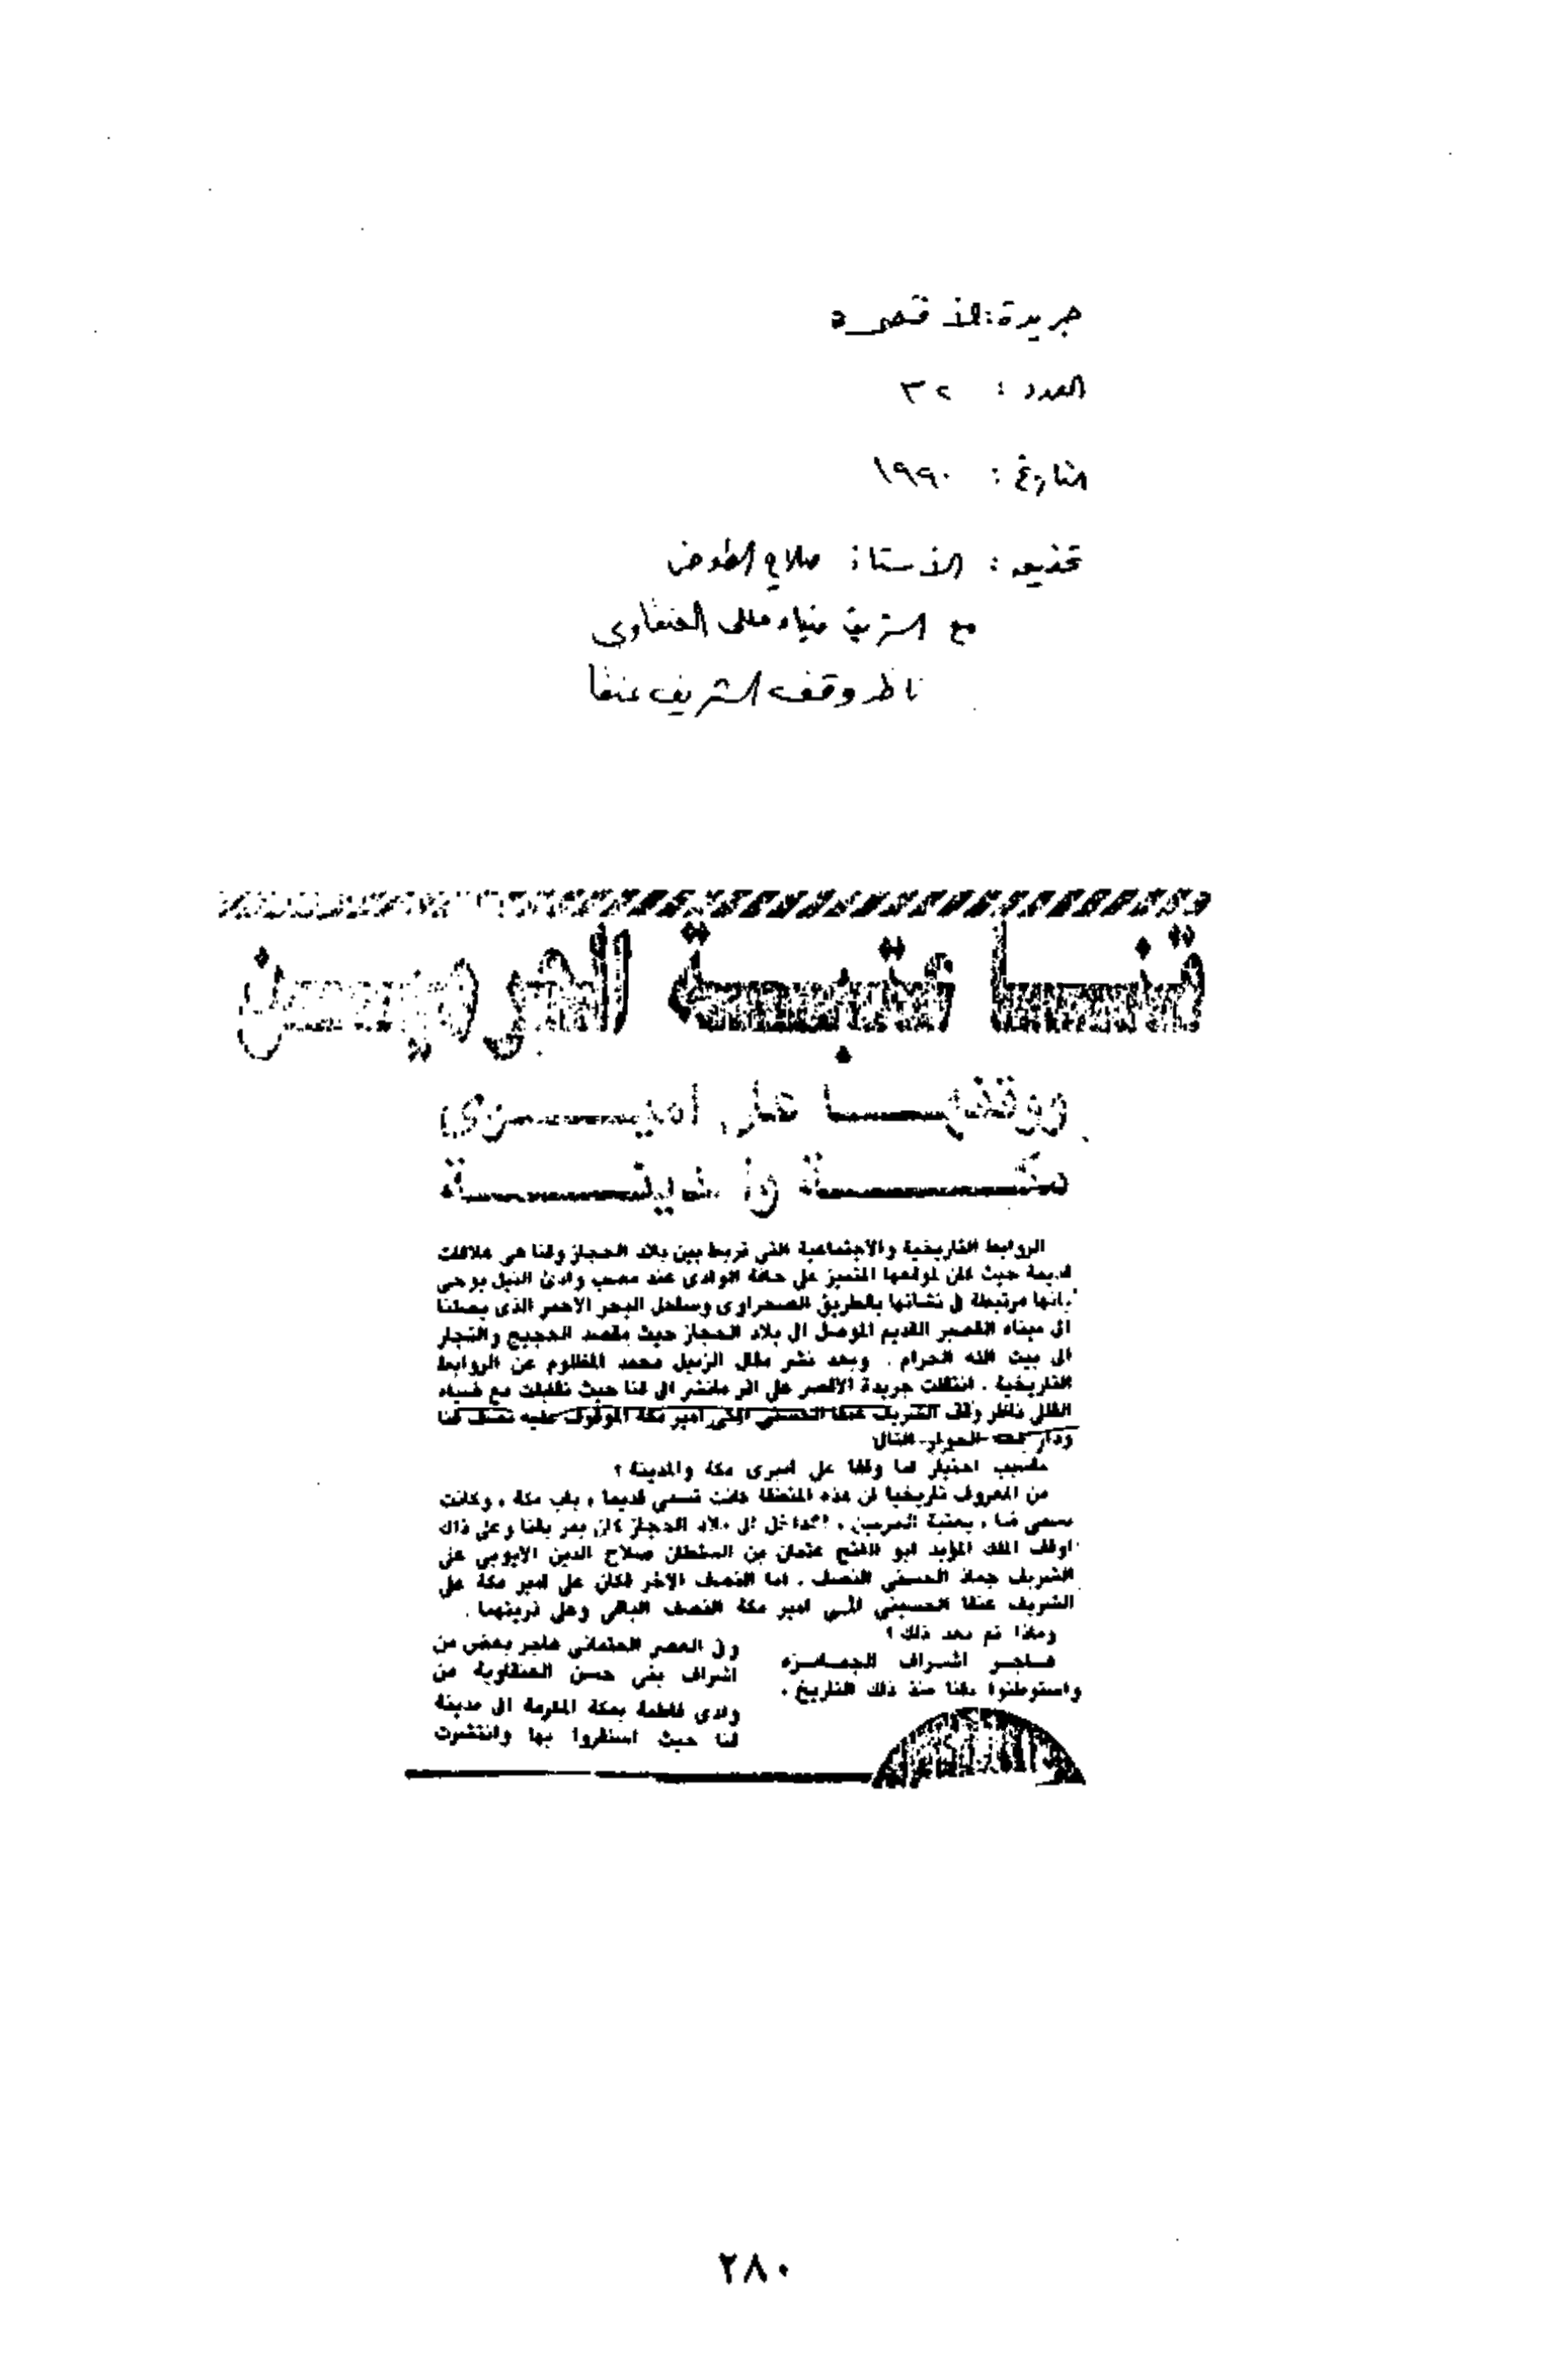 جريدة: الأقصر
العدد: ٣٢
التاريخ: ١٩٩٠
تحقيق: الأستاذ صلاح
مع الشريف ضياء العنقاوى
ناظر وقف الشريف عنقا
قنا عتبة الحرمين
ووقفها على اميرى
مكة والمدينة
الروابط التاريخية والاجتماعية التى تربط بين بلاد الحجاز وقنا هى علاقات
قديمة حيث كان لموقعها المتميز على حافة الوادى عند مصب وادى النيل يوحى
بانها مرتبطة فى نشاتها بالطريق الصحراوى وساحل البحر الاحمر الذى يصلنا
الى ميناء القصير القديم الموصل الى بلاد الحجاز حيث مقصد الحجيج والتجار
الى بيت الله الحرام . وبعد نشر مقال الزميل محمد المظلوم عن الروابط
التاريخية . انتقلت جريدة الاقصر على اثر مانشر الى قنا حيث تقابلت مع ضياء
القللى ناظر وقف الشريف عنقا الحسنى المكى امير مكة الموقوف عليه نصف قنا
ودار الحوار التالى
ماسبب اختيار قنا وقفا على اميرى مكة والمدينة ؟
من المعروف تاريخيا ان هذه المنطقة كانت تسمى قديما ، باب مكة ، وكانت
تسمى قنا ، بعتبة الحرمين ، الداخل الى بلاد الحجاز كان يمر بقنا وعلى ذلك
اوقف الملك المؤيد ابو الفتح عثمان بن السلطان صلاح الدين الايوبى على
الشريف جماز الحسينى النصف . اما النصف الاخر فكان على امير مكة على
الشريف عنقا الحسينى امير مكة النصف الباقى وعلى ذريتهما .
وماذا تم بعد ذلك ؟
هاجر اشراف الجمامزه
واستوطنوا بقنا منذ ذلك التاريخ .
وفى العصر العثمانى هاجر بعض من
اشراف بنى حسن العنقاوية من
وادى فاطمة بمكة المكرمة الى مدينة
قنا حيث استقروا بها وانتشرت
٢٨٠